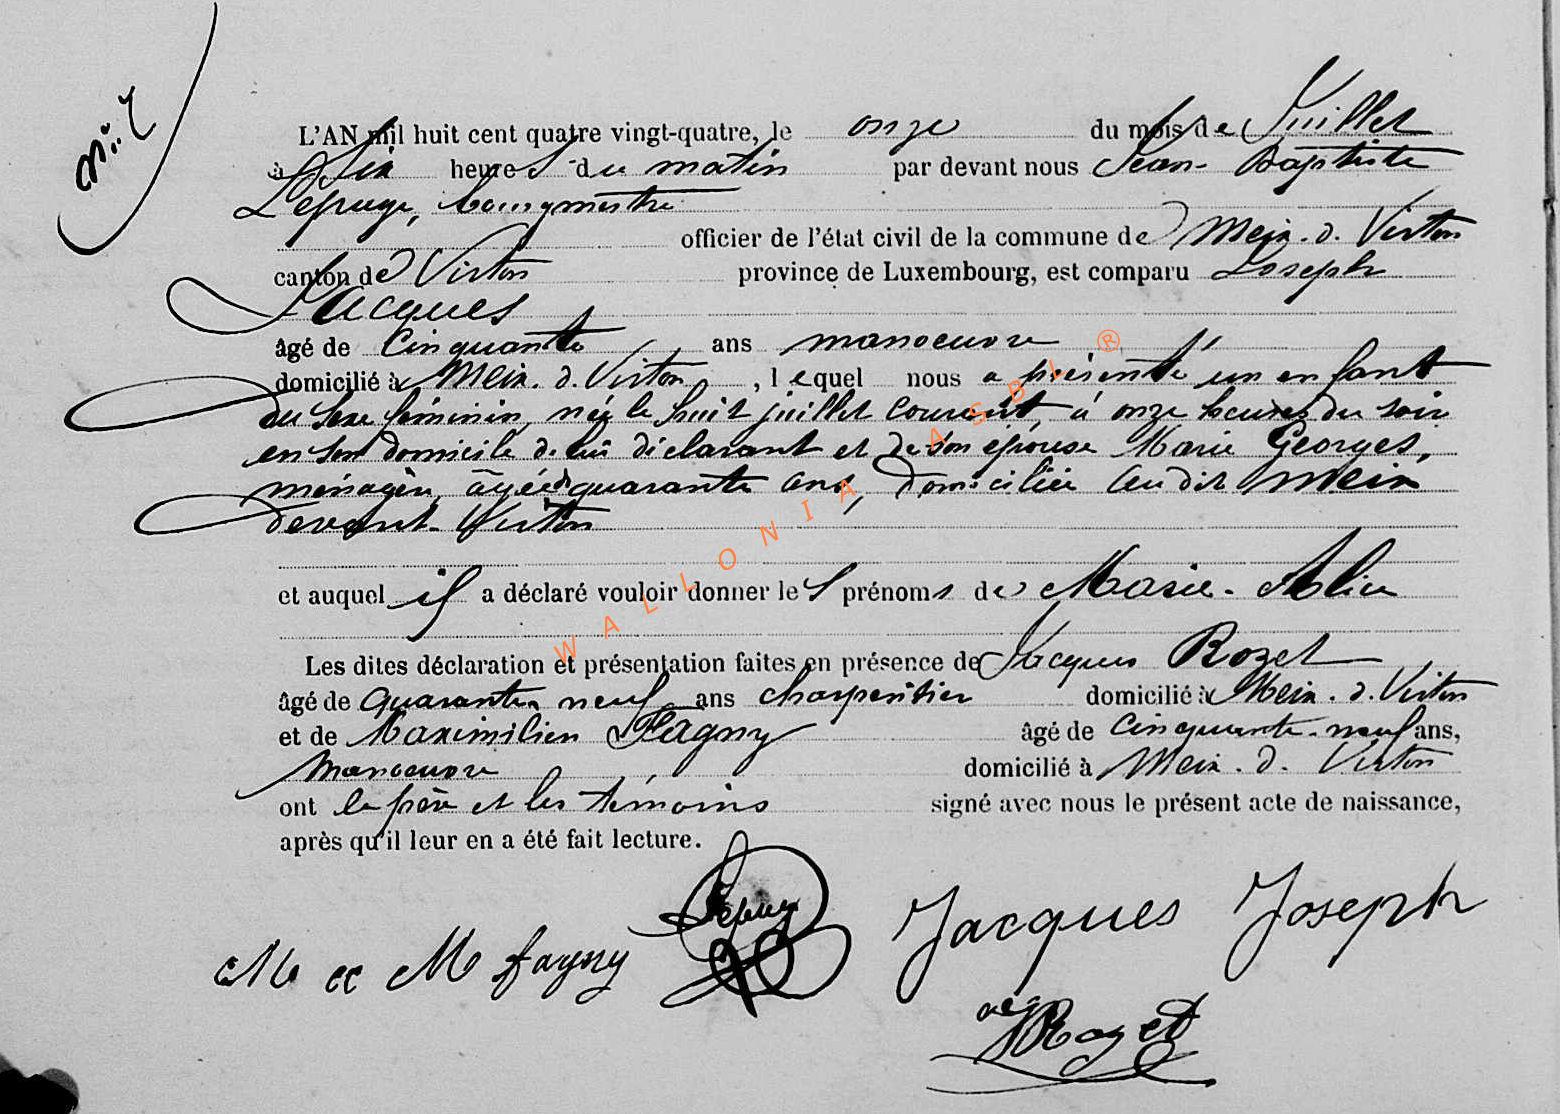 L'AN mil huit cent quatre vingt-quatre, le onze du mois de Juillet
à six heures du matin par devant nous Jean-Baptiste
Lepage, bourgmestre
officier de l'état civil de la commune de Meix-d. Virton
canton de Virton province de Luxembourg, est comparu Joseph
Jacques
âgé de cinquante ans manoeuvre
domicilié à Meix-d. Virton, lequel nous a présenté un enfant
du sexe féminin, née le huit juillet courant, à onze heures du soir
en son domicile de lui déclarant et de son épouse Marie Georges,
ménagère, âgée de quarante ans, domiciliée audit Meix
devant-Virton
et auquel il a déclaré vouloir donner les prénoms de Marie-Alice
Les dites déclaration et présentation faites en présence de Jacques Rozet
âgé de quarante-neuf ans charpentier domicilié à Meix-d. Virton
et de Maximilien Fagny âgé de cinquante-neuf ans,
manoeuvre domicilié à Meix-d. Virton
ont le père et les témoins signé avec nous le présent acte de naissance,
après qu'il leur en a été fait lecture.
Lepage
Jacques Joseph
M fagny
Rozet
WALLONIA ASBL ®